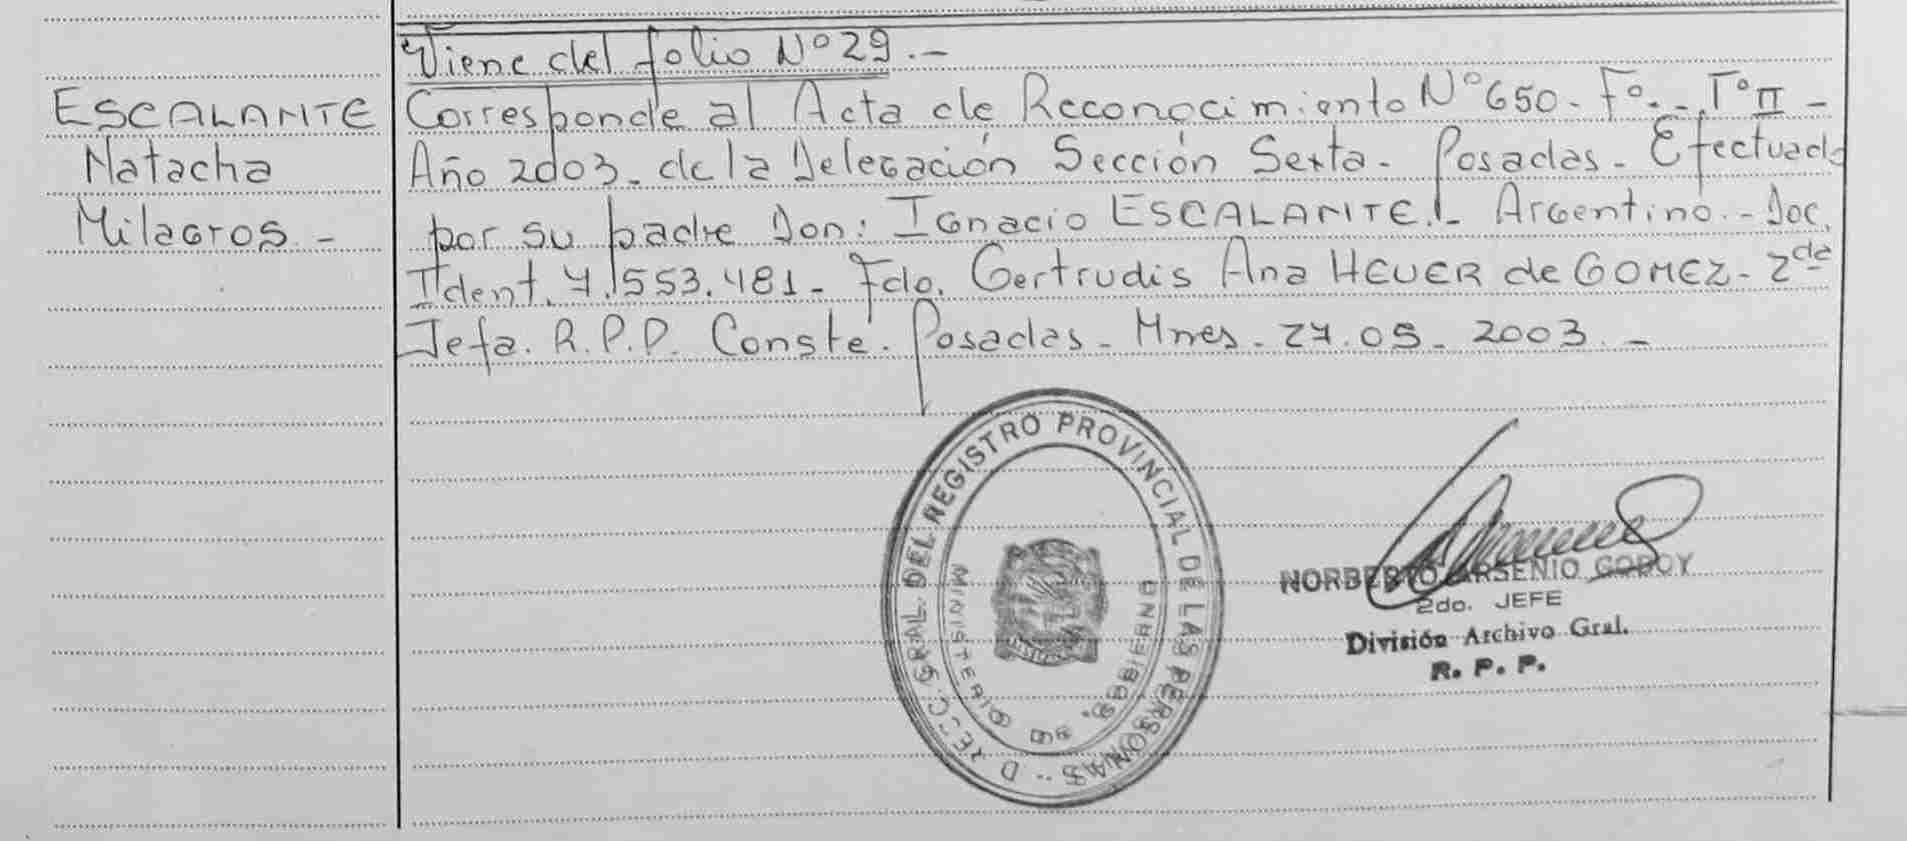 Viene del folio Nº 29.-
ESCALANTE
Natacha
Milagros.-
Corresponde al Acta de Reconocimiento Nº 650- Fº.-.Tº II -
Año 2003. de la Delegación Sección Sexta- Posadas- Efectuado
por su padre Don: Ignacio ESCALANTE.- Argentino.- Doc.
Ident. 7.553.481- Fdo. Gertrudis Ana HEUER de GOMEZ- 2da
Jefa. R.P.P. Conste. Posadas- Mnes- 27.05. 2003.-
DIRECC. GRAL. DEL REGISTRO PROVINCIAL DE LAS PERSONAS
MINISTERIO DE GOBIERNO
NORBERTO ARSENIO GODOY
2do. JEFE
División Archivo Gral.
R. P. P.